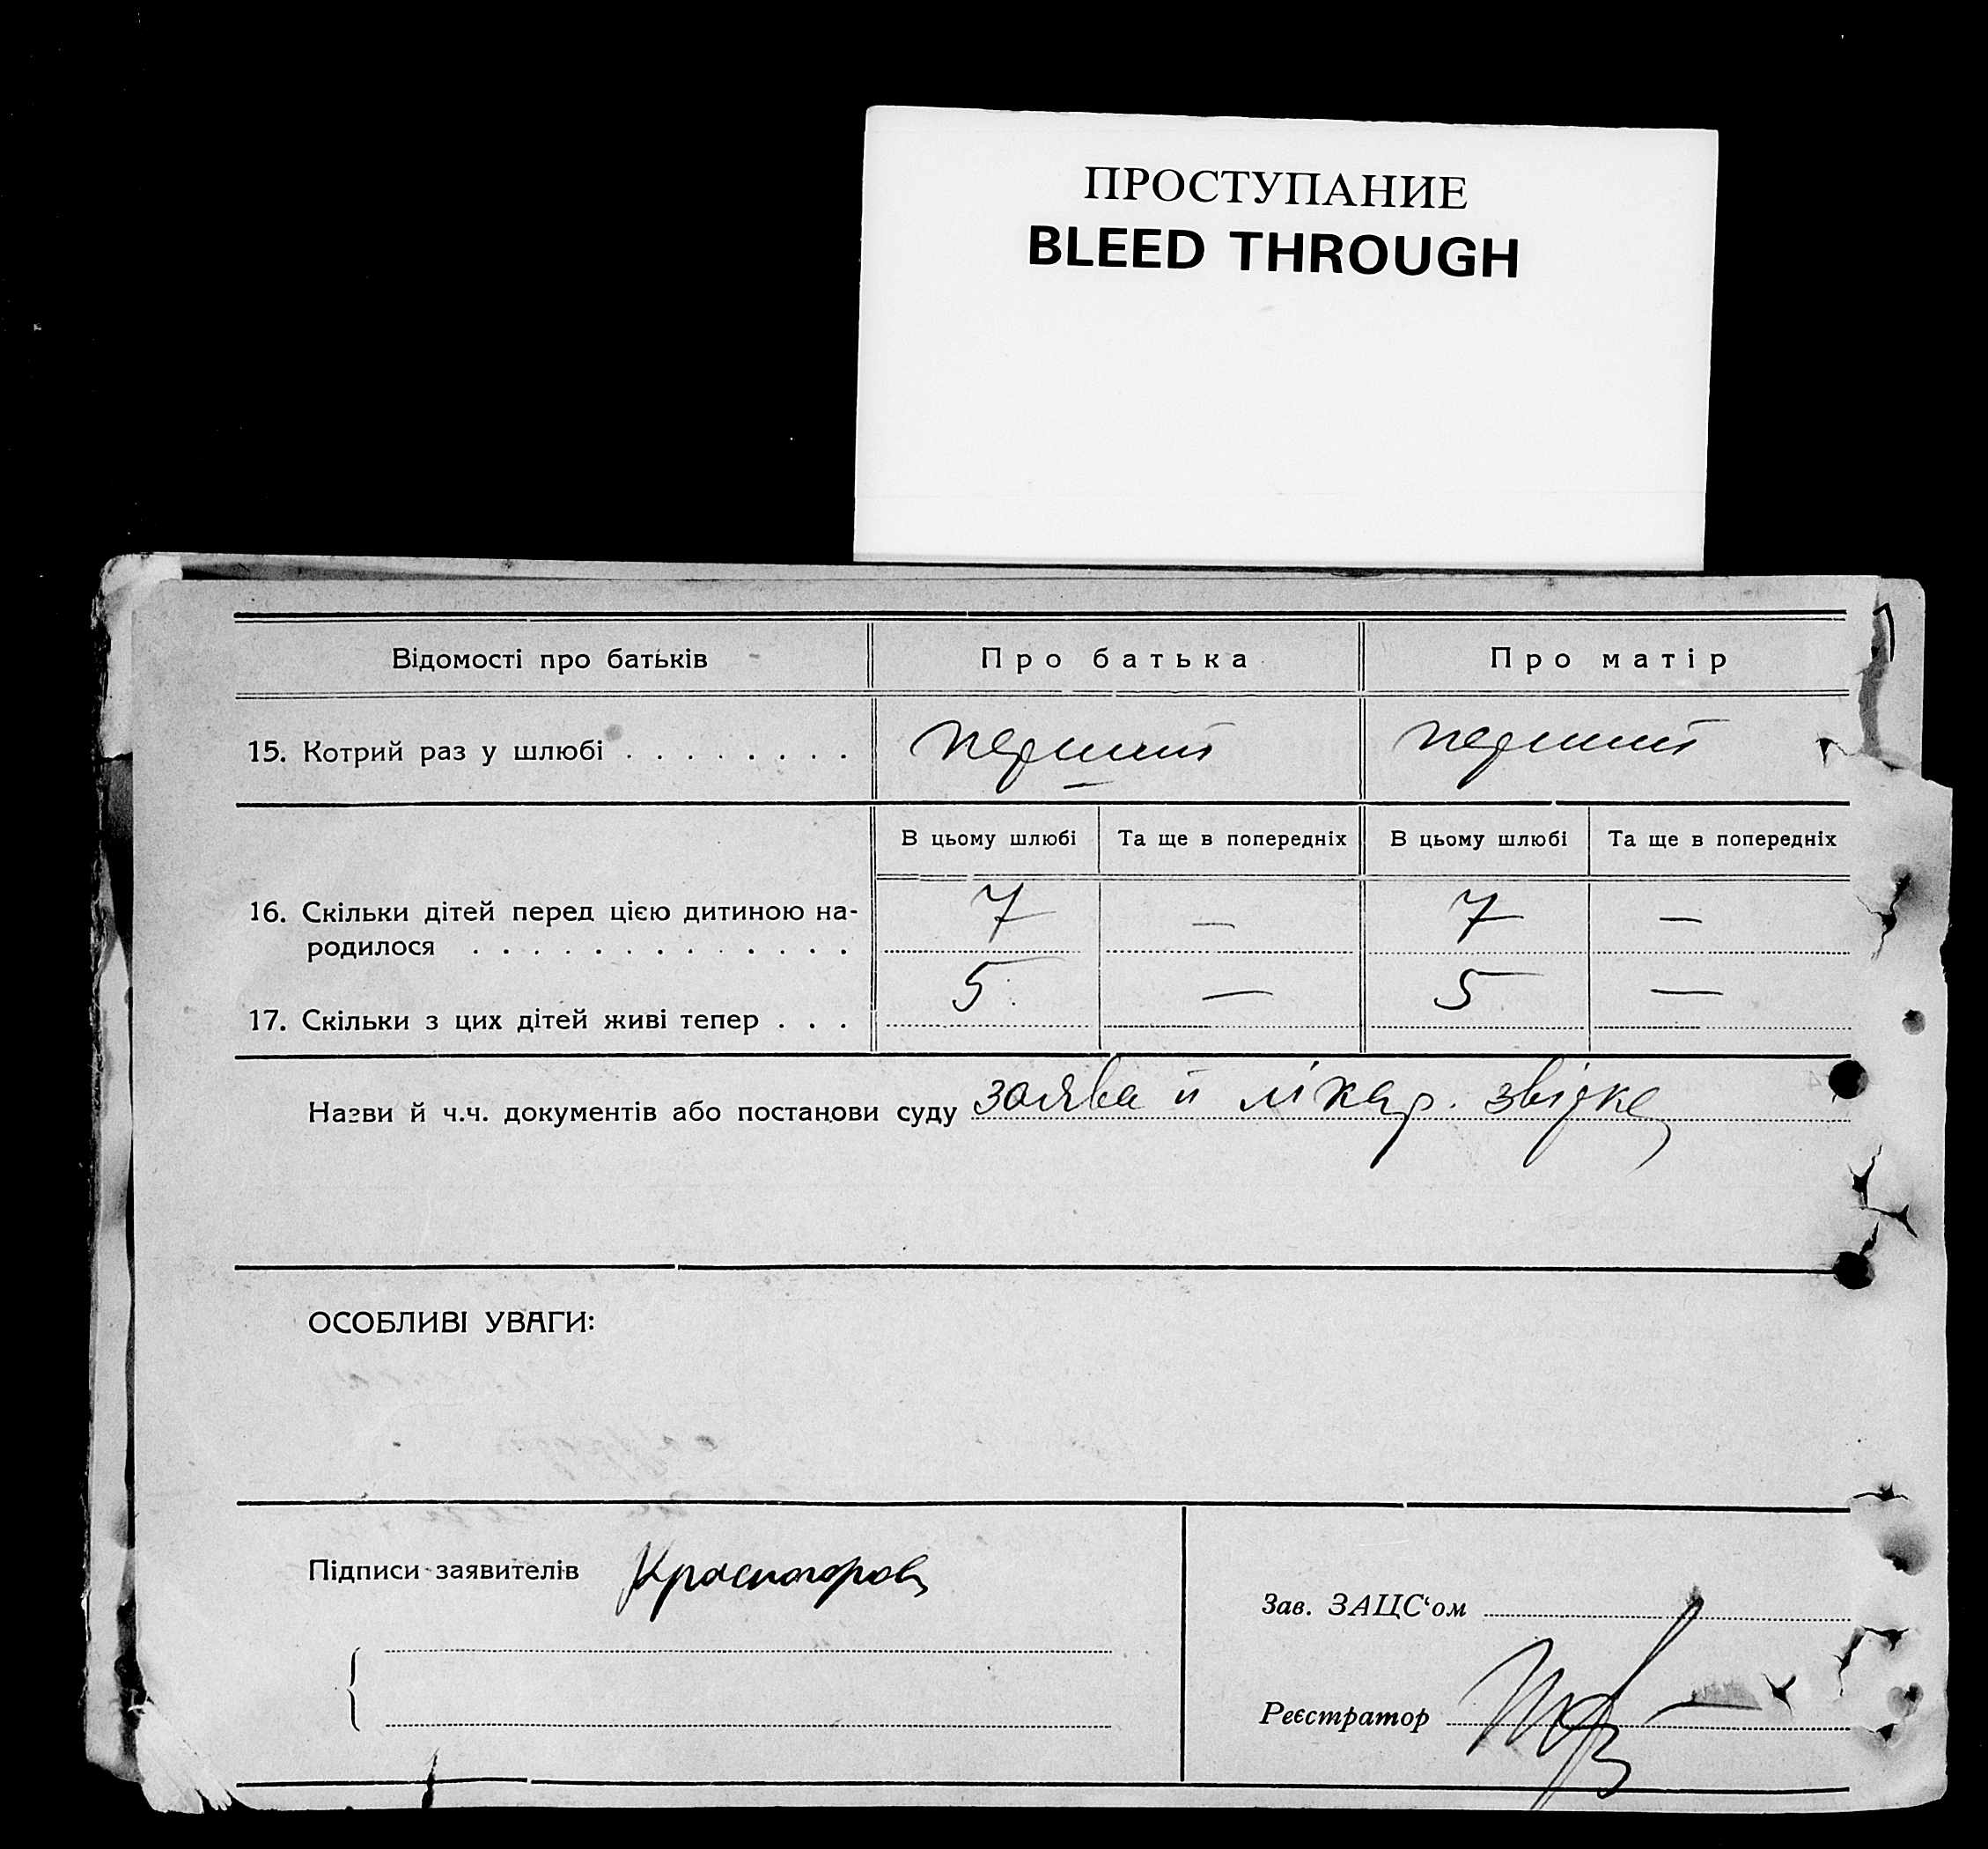 ПРОСТУПАНИЕ
BLEED THROUGH
Відомості про батьків Про батька Про матір
15. Котрий раз у шлюбі . . . . . . . . перший перший
В цьому шлюбі Та ще в попередніх В цьому шлюбі Та ще в попередніх
16. Скільки дітей перед цією дитиною на-
родилося . . . . . . . . . . . . . 7 — 7 —
17. Скільки з цих дітей живі тепер . . . 5 — 5 —
Назви й ч.ч. документів або постанови суду заява й лікар. звідка
ОСОБЛИВІ УВАГИ:
Підписи заявителів
Зав. ЗАЦС‘ом
Реєстратор